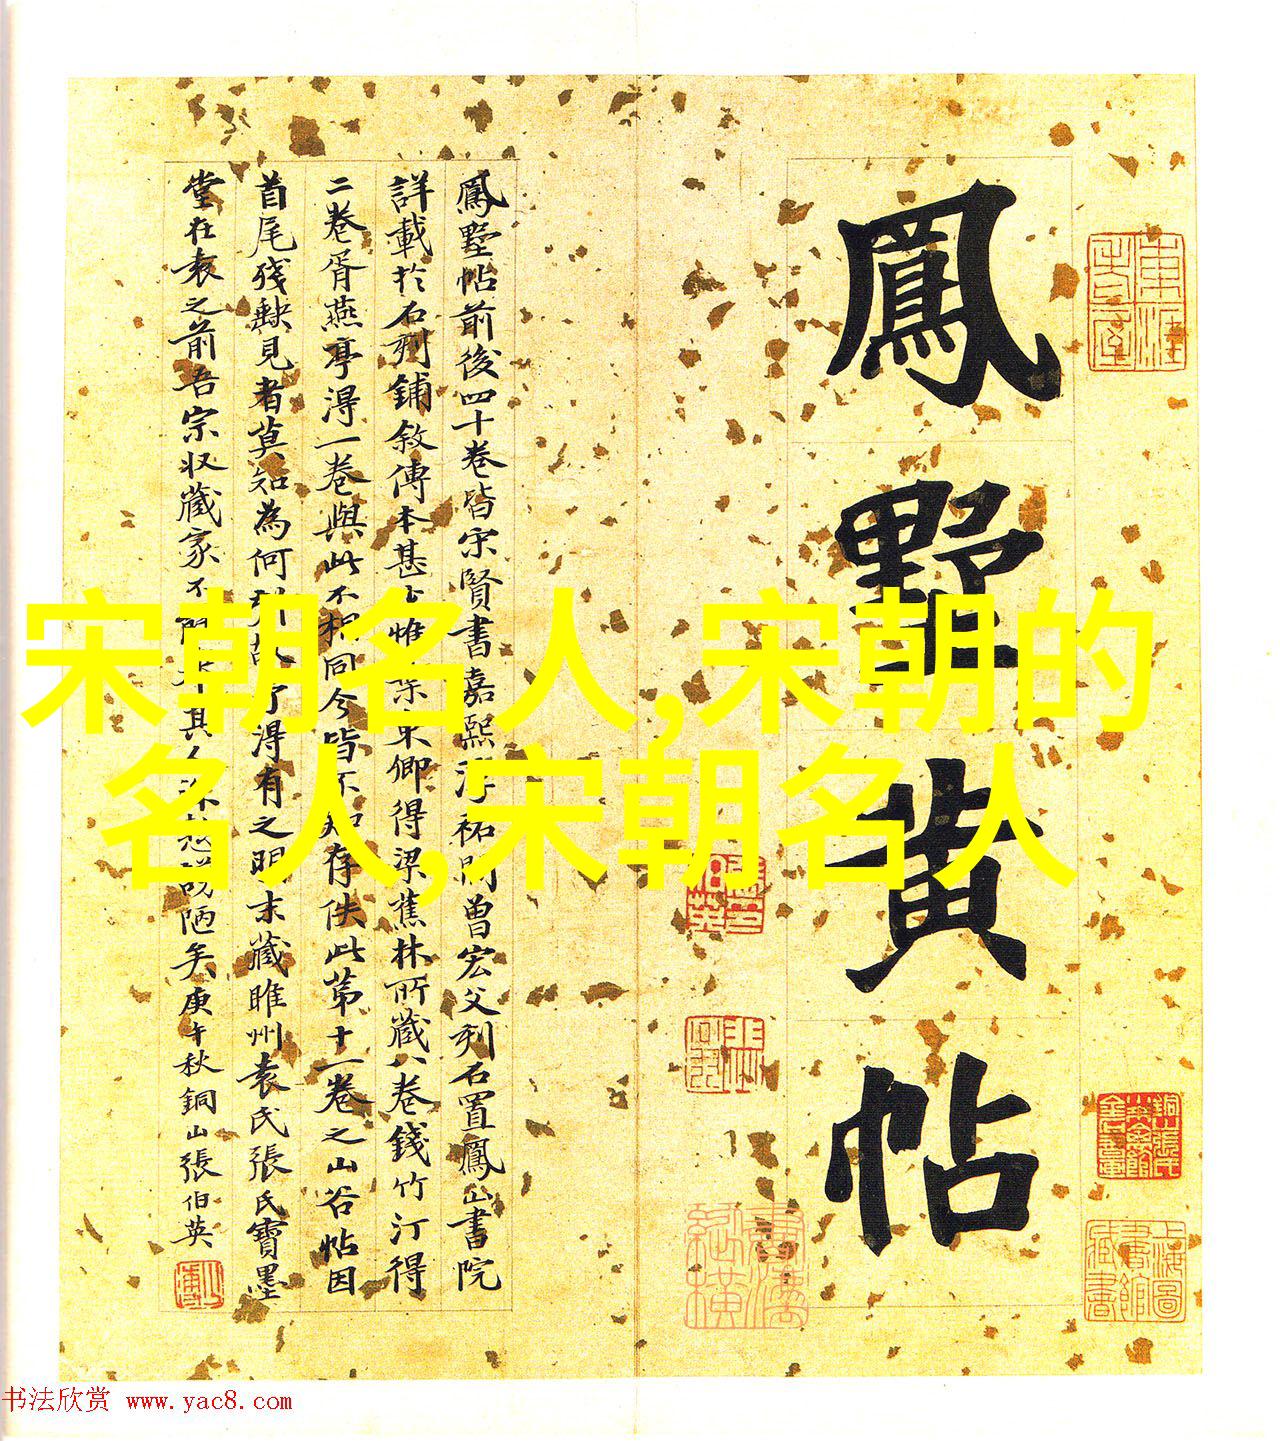 鳳墅黃帖
鳳墅帖前後四十卷皆宋賢書嘉熙淳祐間曾宏父刻石置鳳山書院
詳載於石刻鋪敘傳本甚少惟東卿得梁蕉林所藏八卷錢竹汀得
二卷胥燕亭得一卷與此不相同今皆不知存佚此第十一卷之山谷帖因
首尾殘缺見者莫知為何刻故了得有之明末藏睢州袁氏張氏寶墨
堂在袁之前吾宗收藏家不聞其人深陋矣庚午秋銅山張伯英
上海圖書館藏書
宋朝名人,宋朝的
名人,宋朝名人
书法欣赏 www.yac8.com